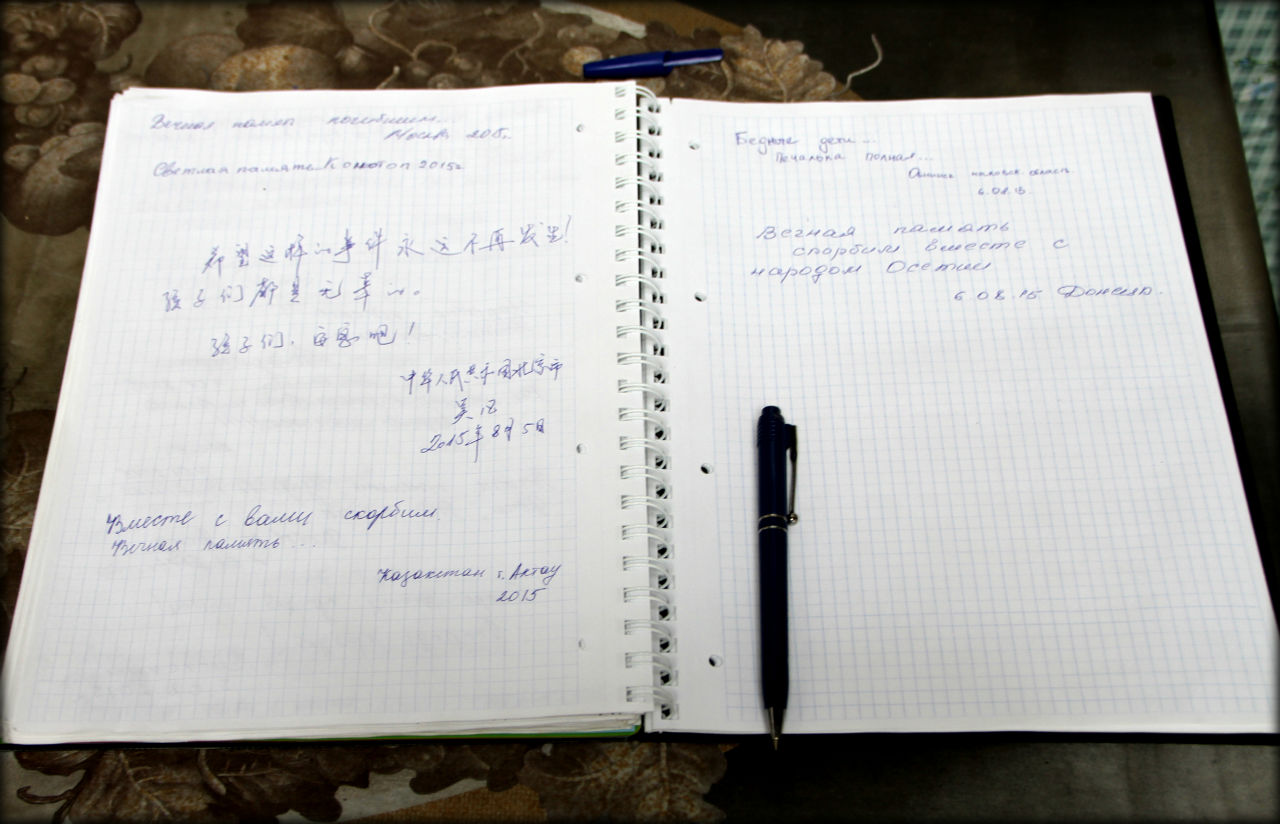 Вечная памят погибшим...
Москва 2015г.
Светлая память. Конотоп 2015г.
希望这样的事件永远不再发生!
孩子们都是无辜的。
孩子们，安息吧!
中华人民共和国北京市
吴
2015年8月5日
Вместе с вами скорбим.
Вечная память...
Казахстан г. Актау
2015
Бедные дети...
Печалька полная...
область
6.08.15.
Вечная память
скорбим вместе с
народом Осетии
6.08.15